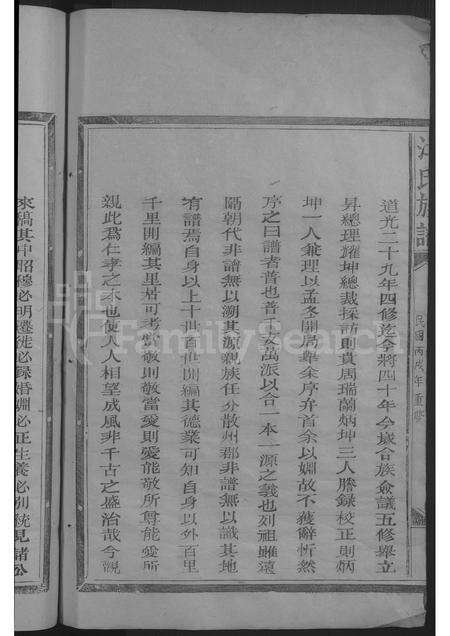 氏族譜
民國丙戌年重修
道光二十九年四修迄今將四十年今歲合族僉議五修舉立
昇總理耀坤總裁採訪則貴周瑞蘭炳坤三人謄錄校正則炳
坤一人兼理以孟冬開局舉余序弁首余以姻故不獲辭忻然
序之曰譜者普也普千支萬派以合一本一源之義也列祖雖遠
隔朝代非譜無以溯其源親族任分散州郡非譜無以識其地
有譜焉自身以上十世百世開編其德業可知自身以外百里
千里開編其里居可考敬則敬當愛則愛能敬所尊能愛所
親此為仁孝之本也使人人相望成風非千古之盛治哉今觀
來稿其中昭穆必明遷徙必錄婚姻必正生養必別統見諸公
FamilySearch